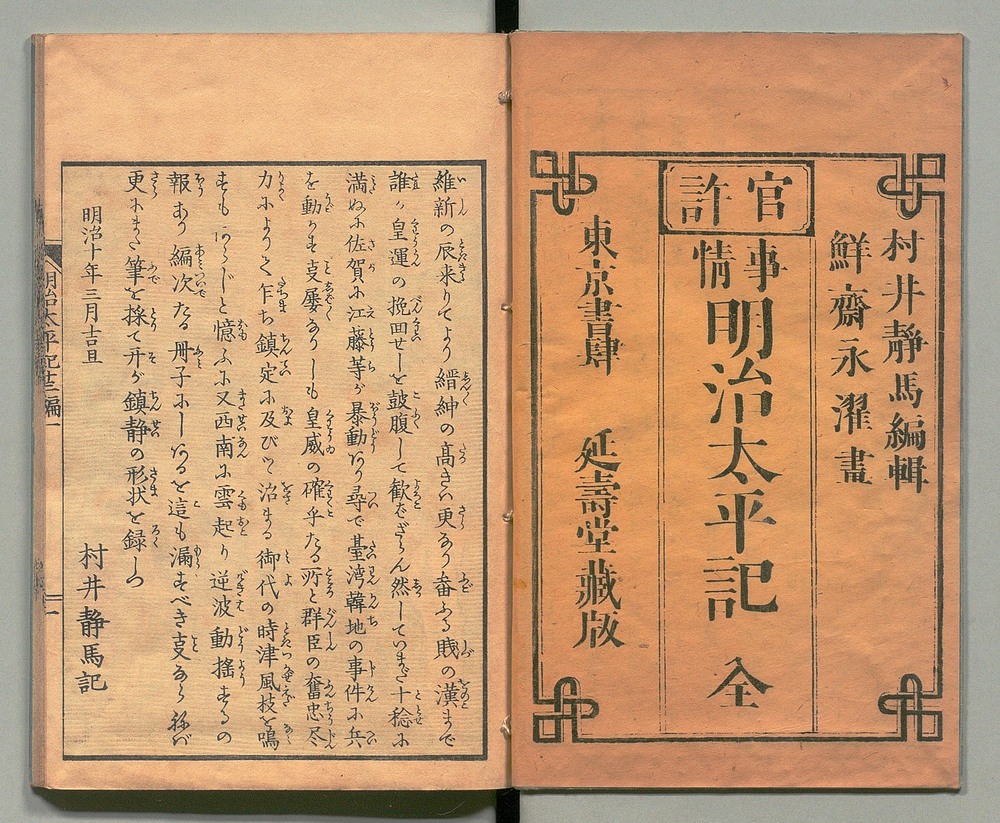 村井靜馬編輯
鮮齋永濯畫
官許
事情
明治太平記 全
東京書肆 延壽堂藏版
維新の辰来りてより縉紳の高きハ更なり畚ふる賎の漢まで
誰か皇運の挽回せしを鼓腹して歓ざらん然していまだ十稔に
満ぬに佐賀に江藤等が暴動あり尋で臺湾韓地の事件に兵
を動かす支屡ありしも皇威の確乎たる所と群臣の奮忠尽
力によりて乍ち鎮定に及びて治まる御代の時津風枝を鳴
すもあらじと憶ふに又西南に雲起り逆波動揺するの
報あり編次たる冊子にしあるを這も漏すべき支ならねバ
更にまた筆を採て开が鎮静の形状を録しつ
明治十年三月吉旦
村井静馬記
明治太平記 編一
一